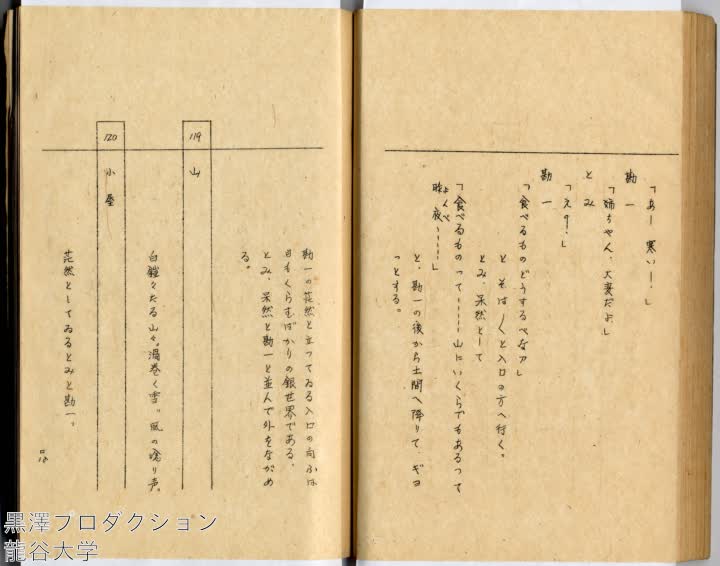 「あー 寒いー！」
勘一
「姉ちゃん、大変だよ」
とみ
「え？！」
勘一
「食べるものどうするべなア」
と そは〱と入口の方へ行く。
とみ、呆然として
「食べるもの って……山にいくらでもあるって
よんべ
昨夜……」
と、勘一の後から土間へ降りて ギョ
っとする。
勘一の茫然と立つてゐる入口の向ふは
目もくらむばかりの銀世界である。
とみ、呆然と勘一と並んで外をながめ
る。
119 山
白皚々たる山々。渦巻く雪。風の唸り声。
120 小屋
茫然としてゐるとみと勘一。
黒澤プロダクション
龍谷大学